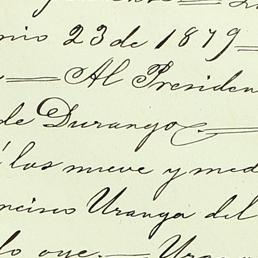 nio 23 de 1879 —
— Al Presiden
de Durango —
á las nueve y med
ncisco Uranga del
lo oye. — Ura